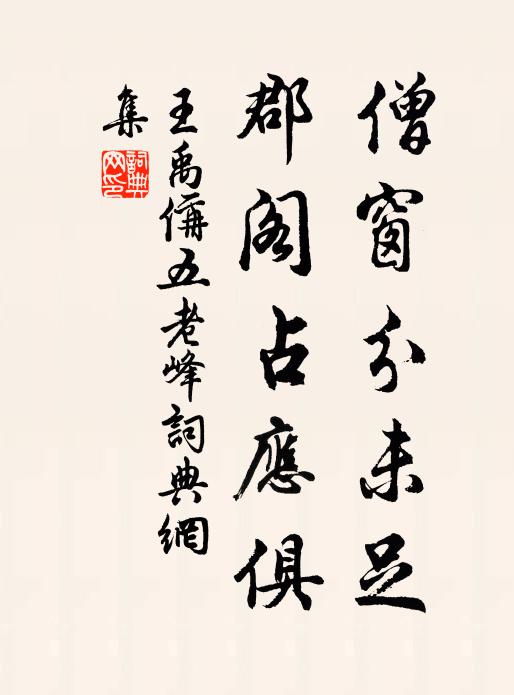 僧窗分未足
郡阁占應俱
王禹偁五老峰詞典網
集
詞典
网印